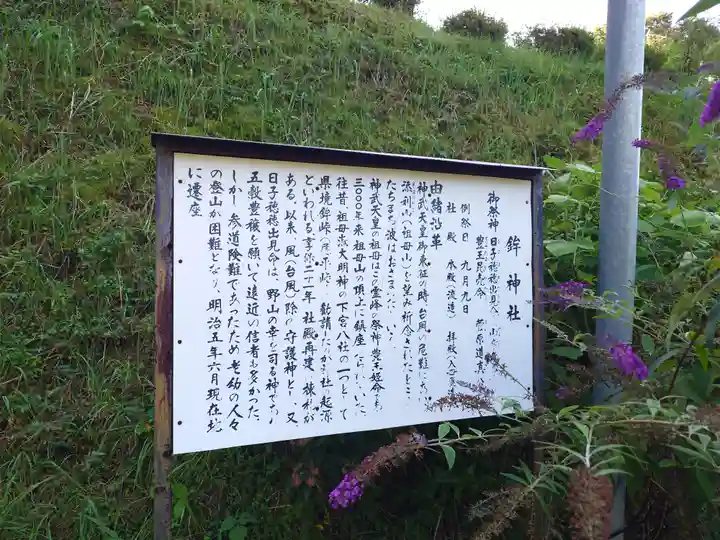 鉾神社
御祭神 日子穂穂出見命
豊玉毘売命 菅原道真
例祭日 九月九日
社殿 本殿(流造) 拝殿(入
由緒沿革
神武天皇御東征の時、台風の厄難にあい
添利山(祖母山)を望み祈念されたところ
たちまち波はおさまったという。
神武天皇の祖母はこの霊峰の祭神豊玉姫命
三〇〇〇年来祖母山の頂上に鎮座
往昔、祖母嶽大明神の下宮八社の一つとして
県境鉾峠 勧請したが当社の起源
といわれる。享保二十年社殿再建、棟札が
ある。以来、風(台風)除の守護神とし、又
日子穂穂出見命は、野山の幸を司る神であり
五穀豊穣を願いて遠近の信者も多かった。
しかし、参道険難であったため老幼の人々
の登山が困難となり、明治五年六月現在地
に遷座